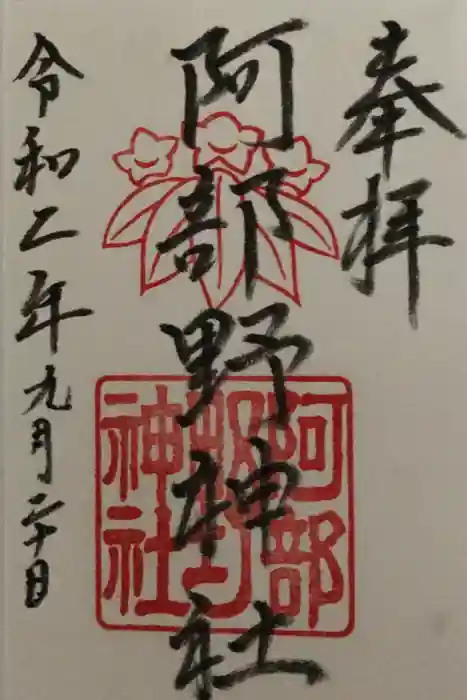 奉拝
阿部野神社
令和二年九月二十日
阿部
野
神社